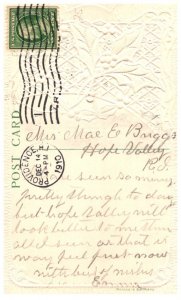 POST CARD
PROVIDENCE
DEC 14
4-PM
1910
Mrs Mae E Briggs
Hope Valley
R.I.
have seen so many
pretty things to day
but hope valley will
look better to me than
all I seen as that is
way feel just now
with best of wishes